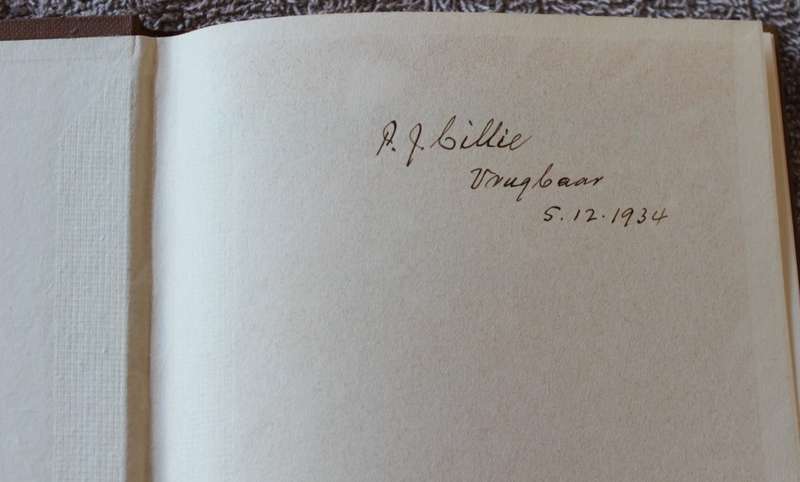 P. J. Cillie
Vrugbaar
5.12.1934